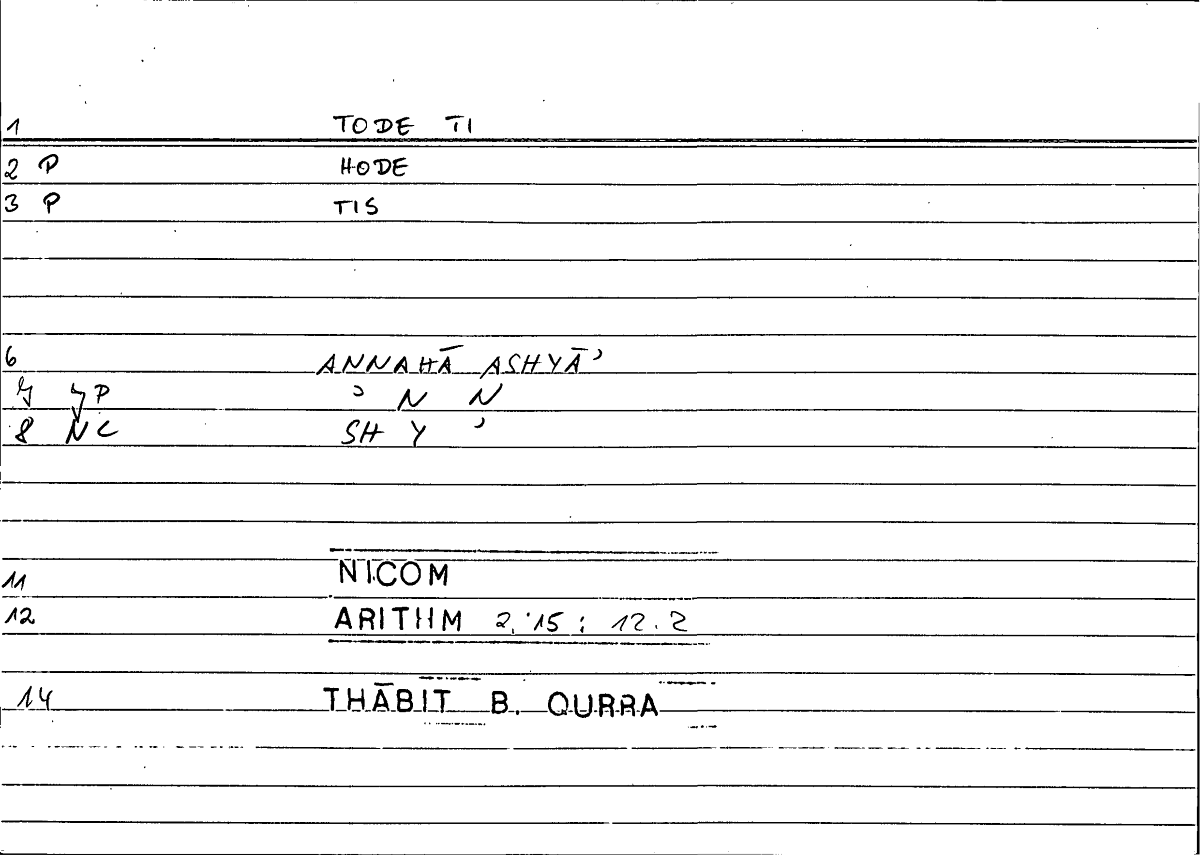 1 TODE TI
2 P HODE
3 P TIS
6 ANNAHĀ ASHYĀʾ
ʾ N N
8 NC SH Y ʾ
11 NICOM
12 ARITHM 2.15 : 12.2
14 THĀBIT B. QURRA